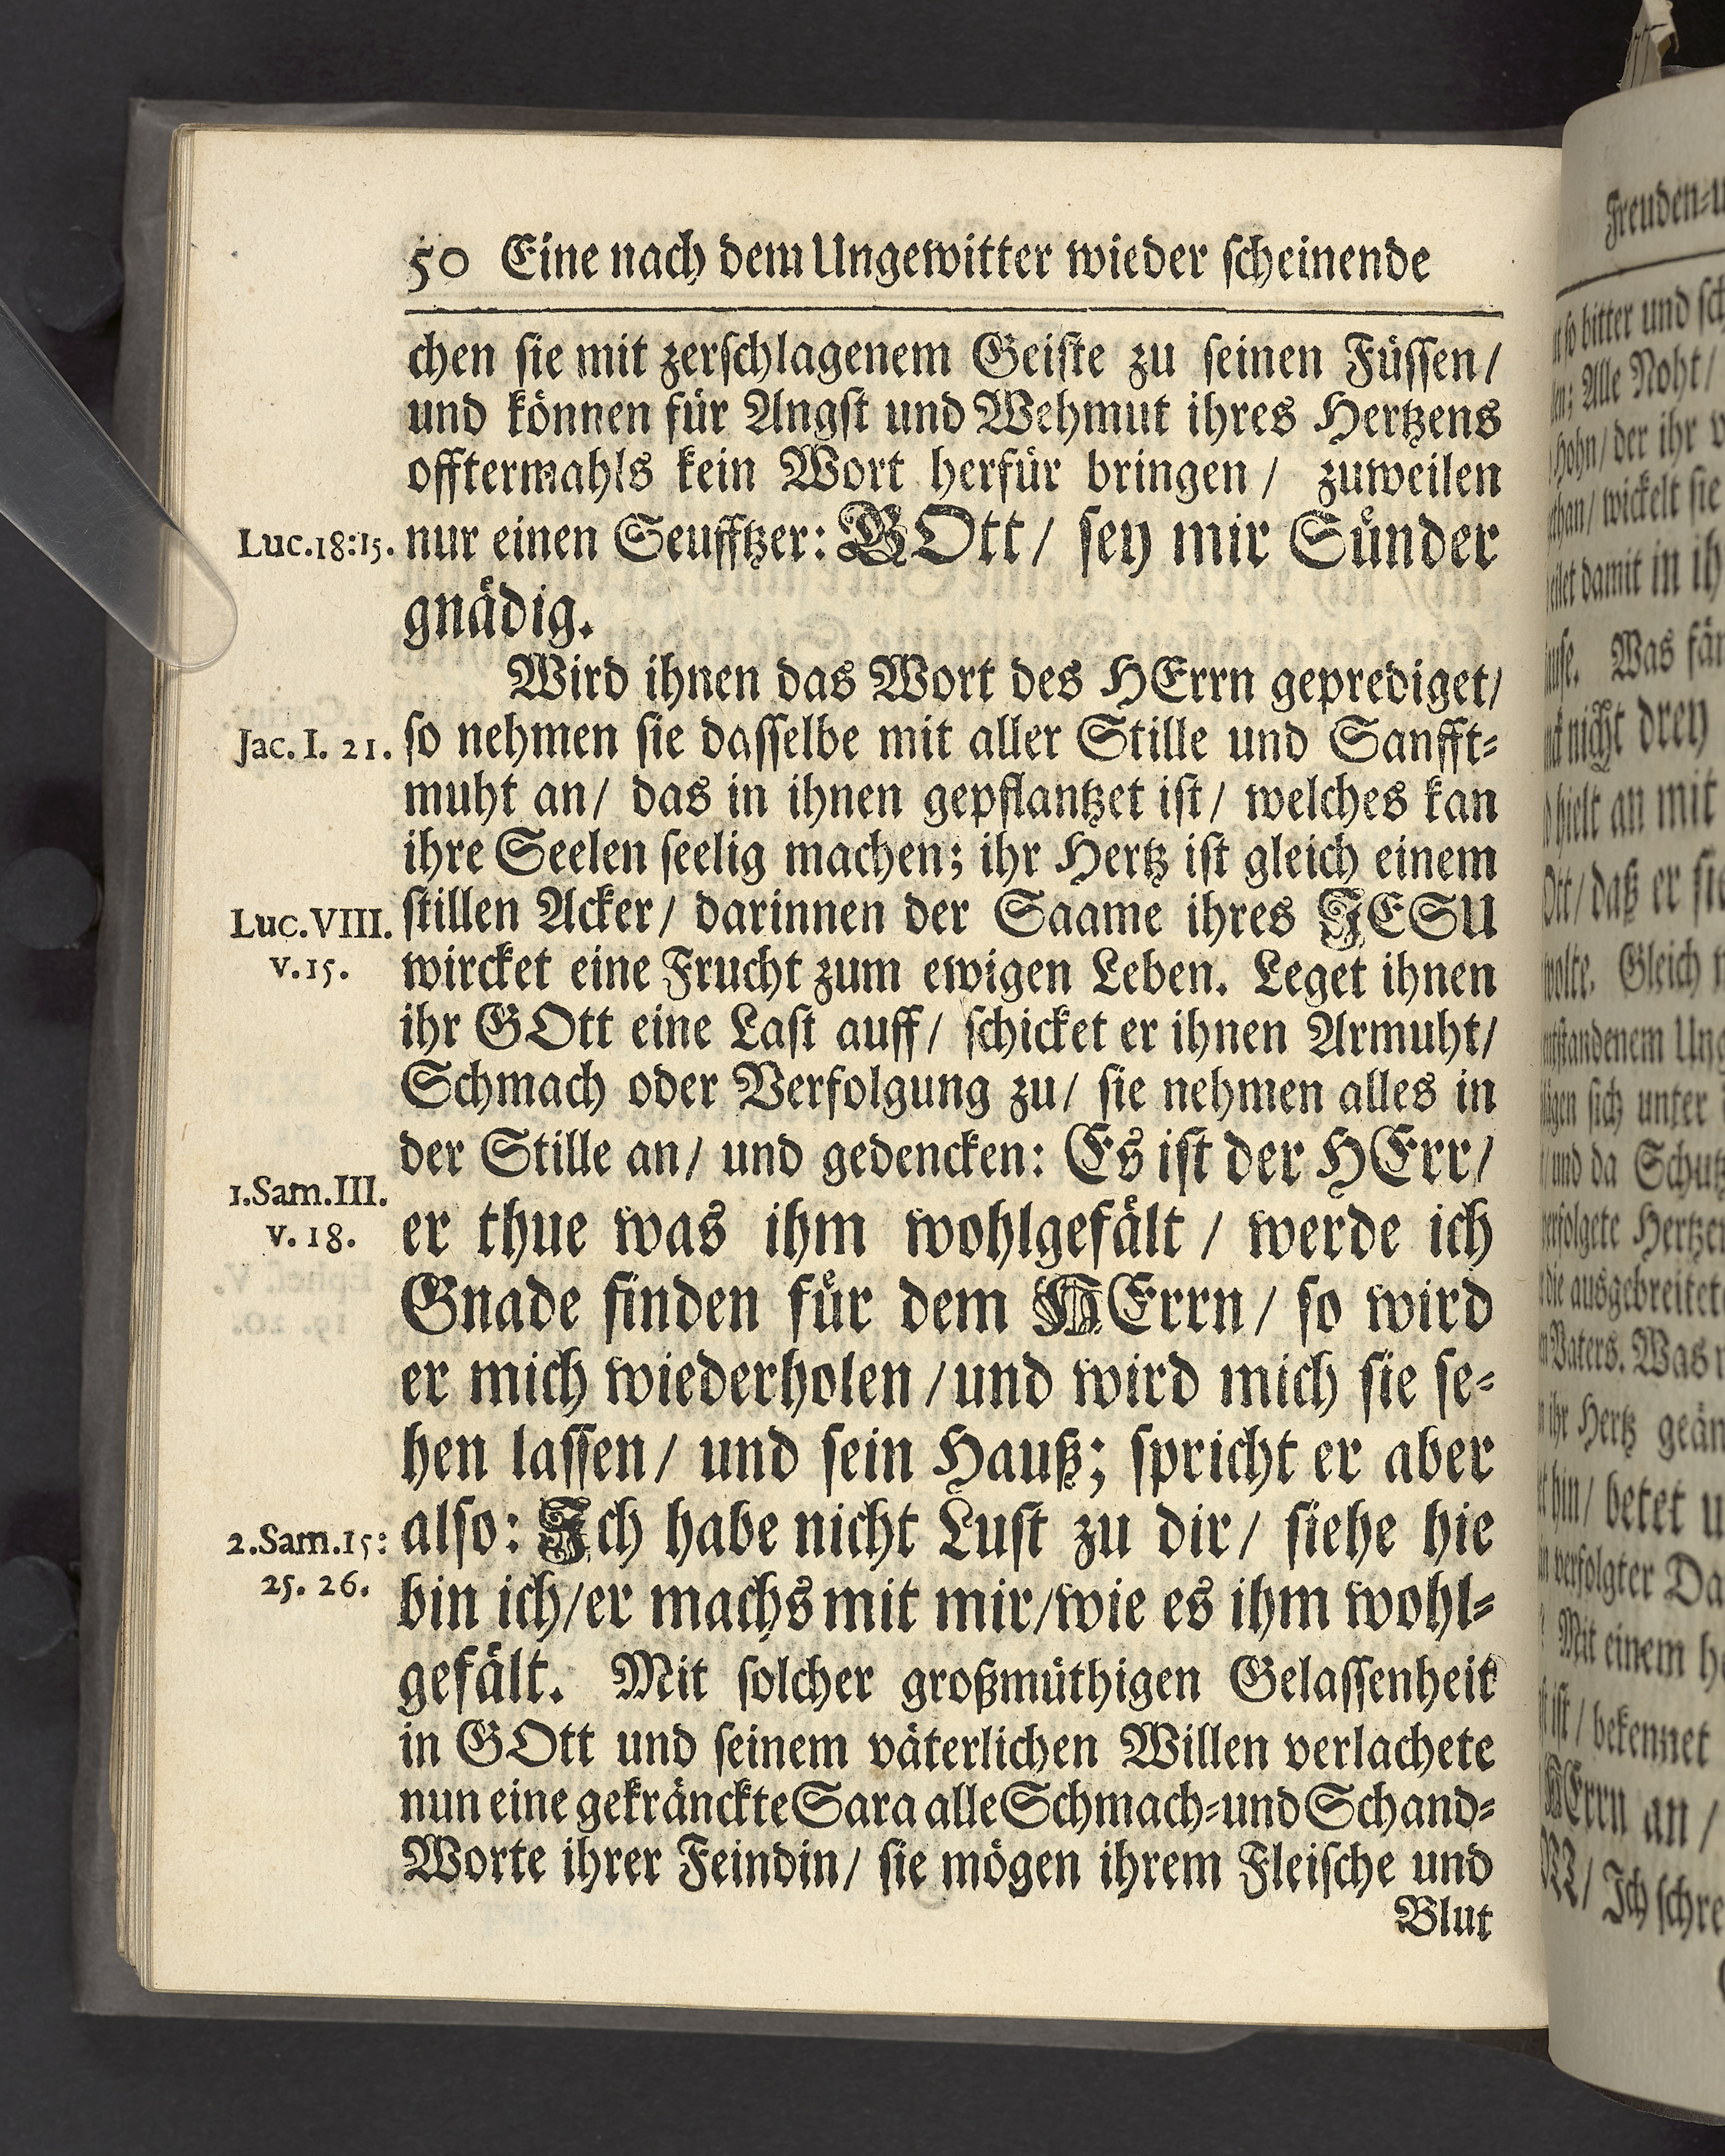 50 Eine nach dem Ungewitter wieder scheinende
chen sie mit zerschlagenem Geiste zu seinen Füssen/
und können für Angst und Wehmut ihres Hertzens
offtermahls kein Wort herfür bringen / zuweilen
Luc.18:15. nur einen Seufftzer: GOtt/ sey mir Sünder
gnädig.
Wird ihnen das Wort des HErrn geprediget/
Jac. I. 21. so nehmen sie dasselbe mit aller Stille und Sanfft-
muht an/ das in ihnen gepflantzet ist/ welches kan
ihre Seelen seelig machen; ihr Hertz ist gleich einem
Luc.VIII. stillen Acker/ darinnen der Saame ihres JESU
v.15. wircket eine Frucht zum ewigen Leben. Leget ihnen
ihr GOtt eine Last auff/ schicket er ihnen Armuht/
Schmach oder Verfolgung zu/ sie nehmen alles in
der Stille an/ und gedencken: Es ist der HErr/
1.Sam.III.
v. 18. er thue was ihm wohlgefält / werde ich
Gnade finden für dem HErrn/ so wird
er mich wiederholen /und wird mich sie se-
hen lassen/ und sein Hauß; spricht er aber
2.Sam.15: also: Ich habe nicht Lust zu dir/ siehe hie
25. 26. bin ich/er machs mit mir/wie es ihm wohl-
gefält. Mit solcher großmüthigen Gelassenheit
in GOtt und seinem väterlichen Willen verlachete
nun eine gekränckte Sara alle Schmach-und Schand-
Worte ihrer Feindin/ sie mögen ihrem Fleische und
Blut
Freuden-
so bitter und
Alle Noht/
Hohn/ der ihr
wickelt sie
damit in
Was
nicht drey
hielt an mit
daß er sie
wolte. Gleich
sich unter
und da
Hertzen
die ausgebreitet
Vaters. Was
ihr Hertz
hin/ betet
verfolgter
Mit einem
ist / bekennet
HErrn an /
Ich